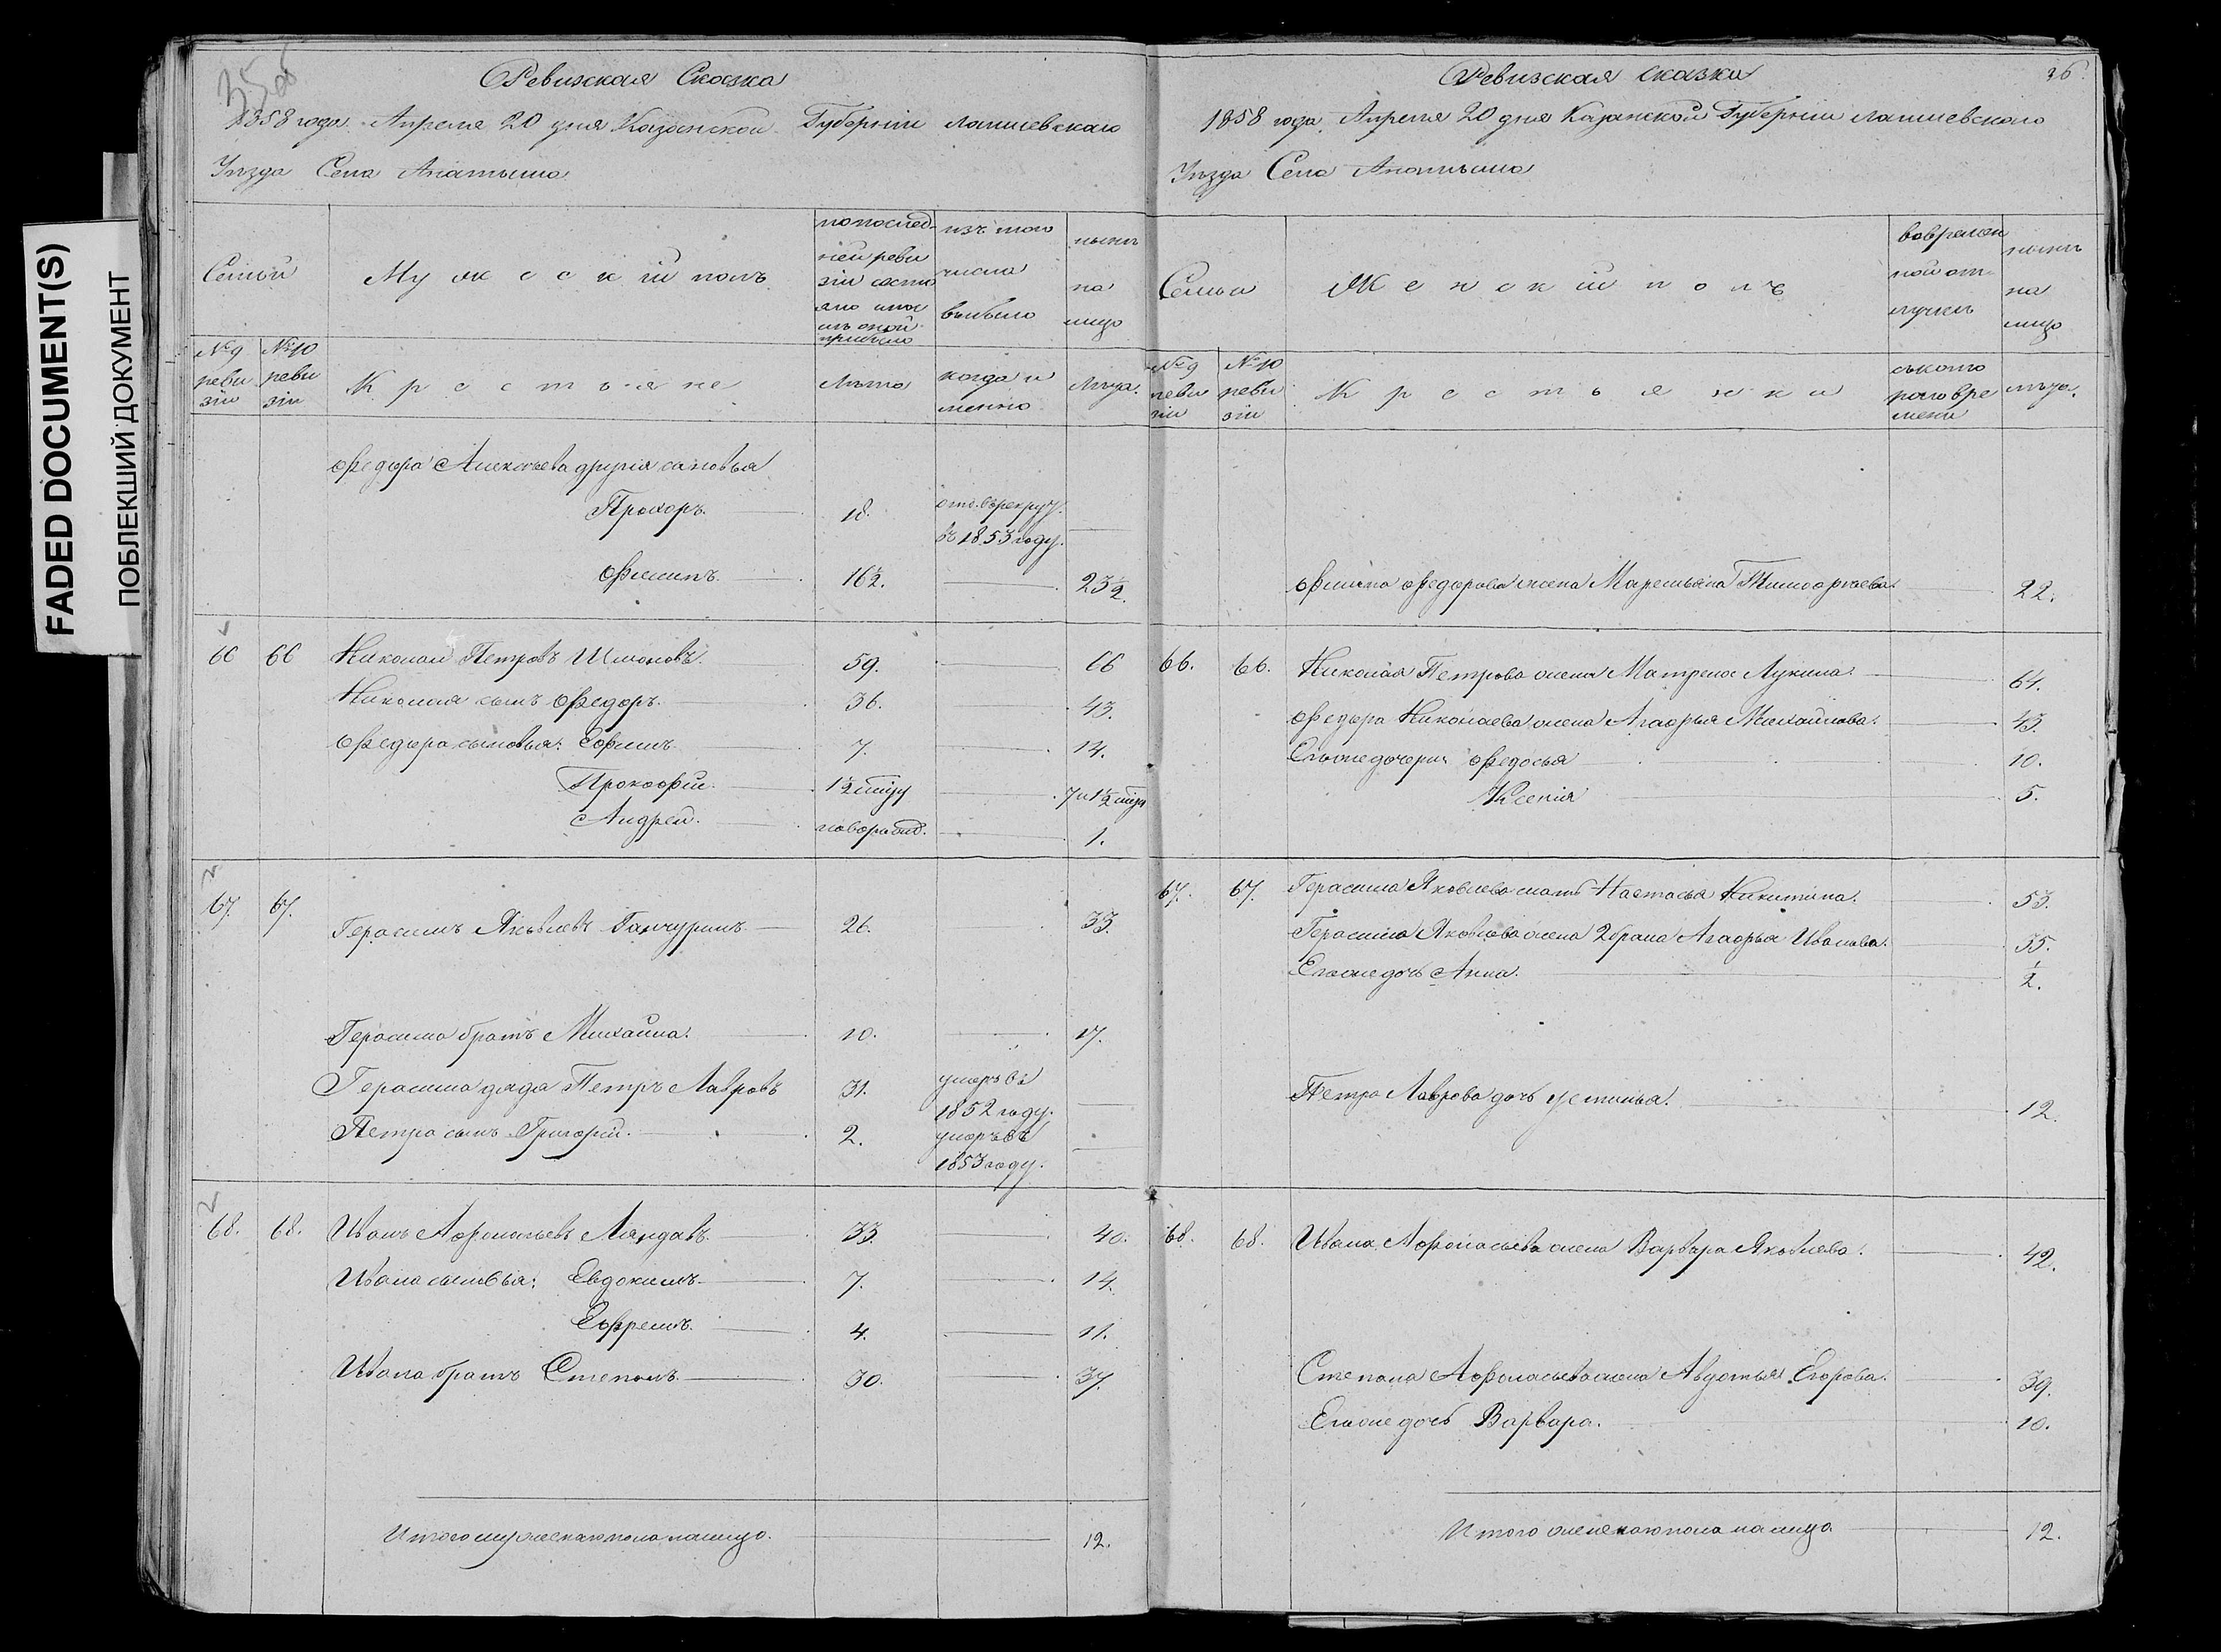 FADED DOCUMENT(S)
ПОБЛЕКШИЙ ДОКУМЕНТ
35об
Ревизская Сказка
1858 года Апреля 20 дня Казанской Губернiи Лаишевскаго
Уѣзда Села Анатыша
Семьи
Мужескiй полъ
по послед-
ней реви
зiи состо
яло и пос
лѣ оной
прибыло
изъ того
числа
выбыло
нынѣ
на
лицо
№ 9
реви
зiи
№ 10
реви
зiи
Крестьяне
Лѣта
когда и
менно
Лѣта.
Федора Алексѣева другiя сыновья
Прохоръ. 18. отд. въ рекрут.
въ 1853 году.
Филипъ. 16½. 23½.
66 66 Николай Петровъ Шмоновъ. 59. 66
Николая сынъ Федоръ. 36. 43.
Федора сыновья: Ефимъ 7. 14.
Прокофiй. 1½
Андрей. новорожд. 1.
67. 67. Герасимъ Яковлевъ Ганчуринъ 26. 33.
Герасима братъ Михаила. 10. 17.
Герасима дядя Петръ Лавровъ 31. умеръ въ
1852 году.
Петра сынъ Григорiй. 2. умеръ въ
1853 году.
68. 68. Иванъ Афонасьевъ Ляндавъ. 33. 40.
Ивана сыновья: Евдокимъ 7. 14.
Ефремъ. 4. 11.
Ивана братъ Степанъ 30. 37.
Итого мужескаго пола на лицо. 12.
36.
Ревизская сказка
1858 года Апреля 20 дня Казанской Губернiи Лаишевскаго
Уѣзда Села Анатыша
Семьи
Женскiй полъ
во времен
ной от-
лучкѣ
нынѣ
на
лицо
№ 9
реви
зiи
№ 10
реви
зiи
Крестьянки
съ кото
раго вре
мени
лѣта.
Филипа Федорова жена Маремьяна Тимофѣева. 22.
66. 66. Николая Петрова жена Матрена Лукина. 64.
Федора Николаева жена Агафья Михайлова. 43.
Егоже дочери Федосья 10.
Ксенiя 5.
67. 67. Герасима Яковлева мать Настасья Никитина. 53.
Герасима Яковлева жена 2 брака Агафья Иванова. 35.
Егоже дочь Анна. ½.
Петра Лаврова дочь Устинья. 12.
68. 68. Ивана Афонасьева жена Варвара Яковлева. 42.
Степана Афонасьева жена Авдотья Егорова. 39.
Егоже дочь Варвара. 10.
Итого женскаго пола на лицо 12.